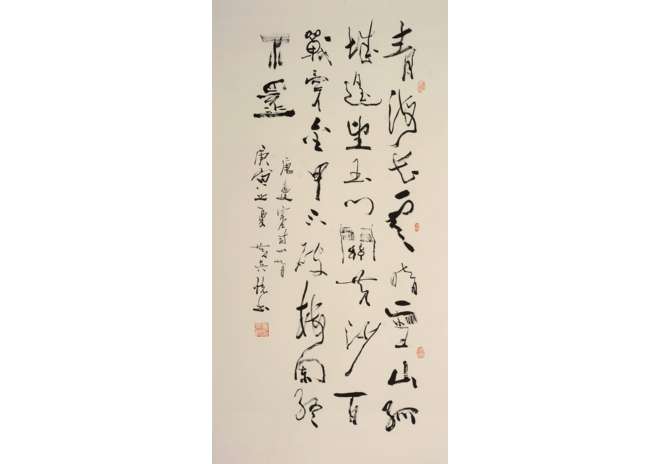 青海長雲暗雪山孤
城遙望玉門關黃沙百
戰穿金甲不破樓蘭終
不還
唐邊塞詩一首
庚寅之夏